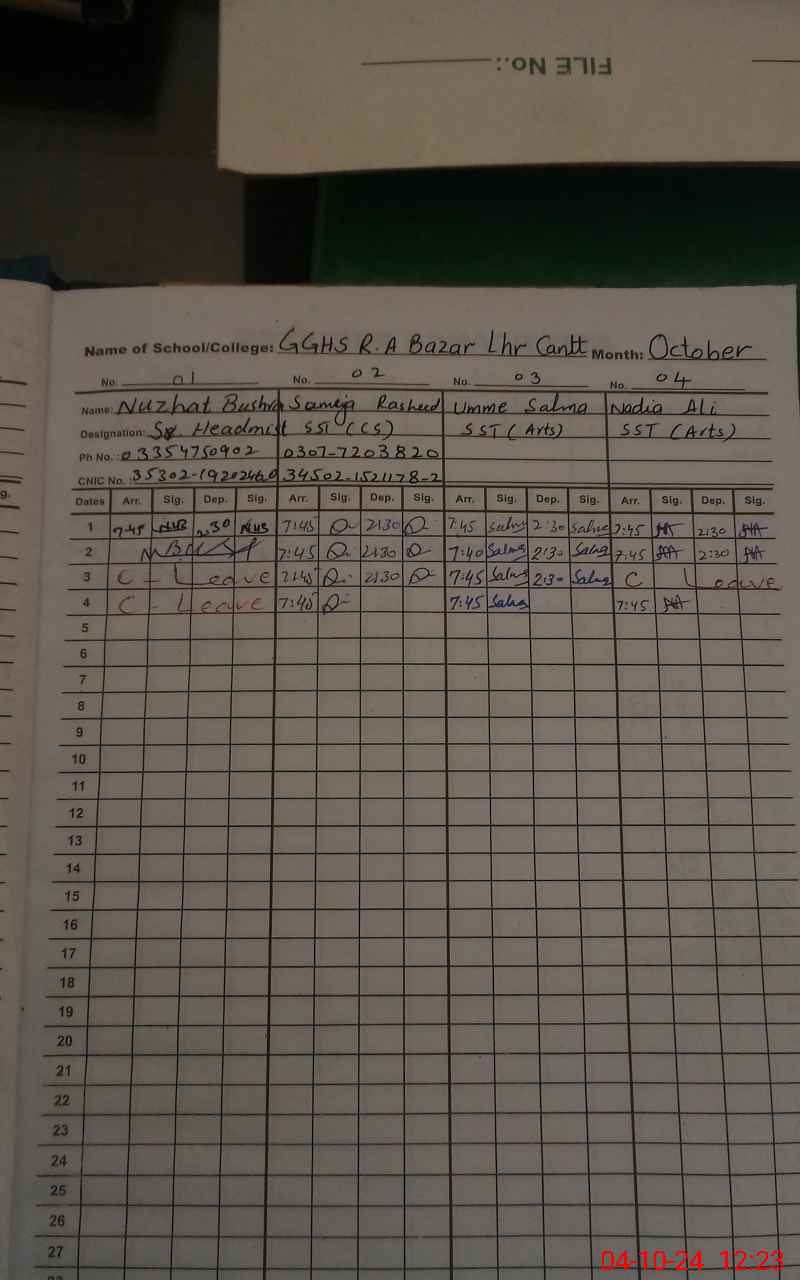 FILE No.:
Name of School/College: GGHS R.A Bazar Lhr Cantt Month: October
No. 01 No. 02 No. 03 No. 04
Name: Nuzhat Bushra Sameja Rasheed Umme Salma Nadia Ali
Designation: Sr. Headmist SST (CS) SST (Arts) SST (Arts)
Ph No.: 03354750902 0307-7203820
CNIC No.: 34502-1521178-2
Dates Arr. Sig. Dep. Sig. Arr. Sig. Dep. Sig. Arr. Sig. Dep. Sig. Arr. Sig. Dep. Sig.
1 7:45 NUB 2:30 NUB 7:45 2:30 7:45 Salma 2:30 Salma 7:45 2:30
2 7:45 2:30 7:40 Salma 2:30 Salma 7:45 2:30
3 C - Leave 7:45 2:30 7:45 Salma 2:30 Salma C Leave
4 C - Leave 7:45 7:45 Salma 7:45
5
6
7
8
9
10
11
12
13
14
15
16
17
18
19
20
21
22
23
24
25
26
27
04-10-24 12:23